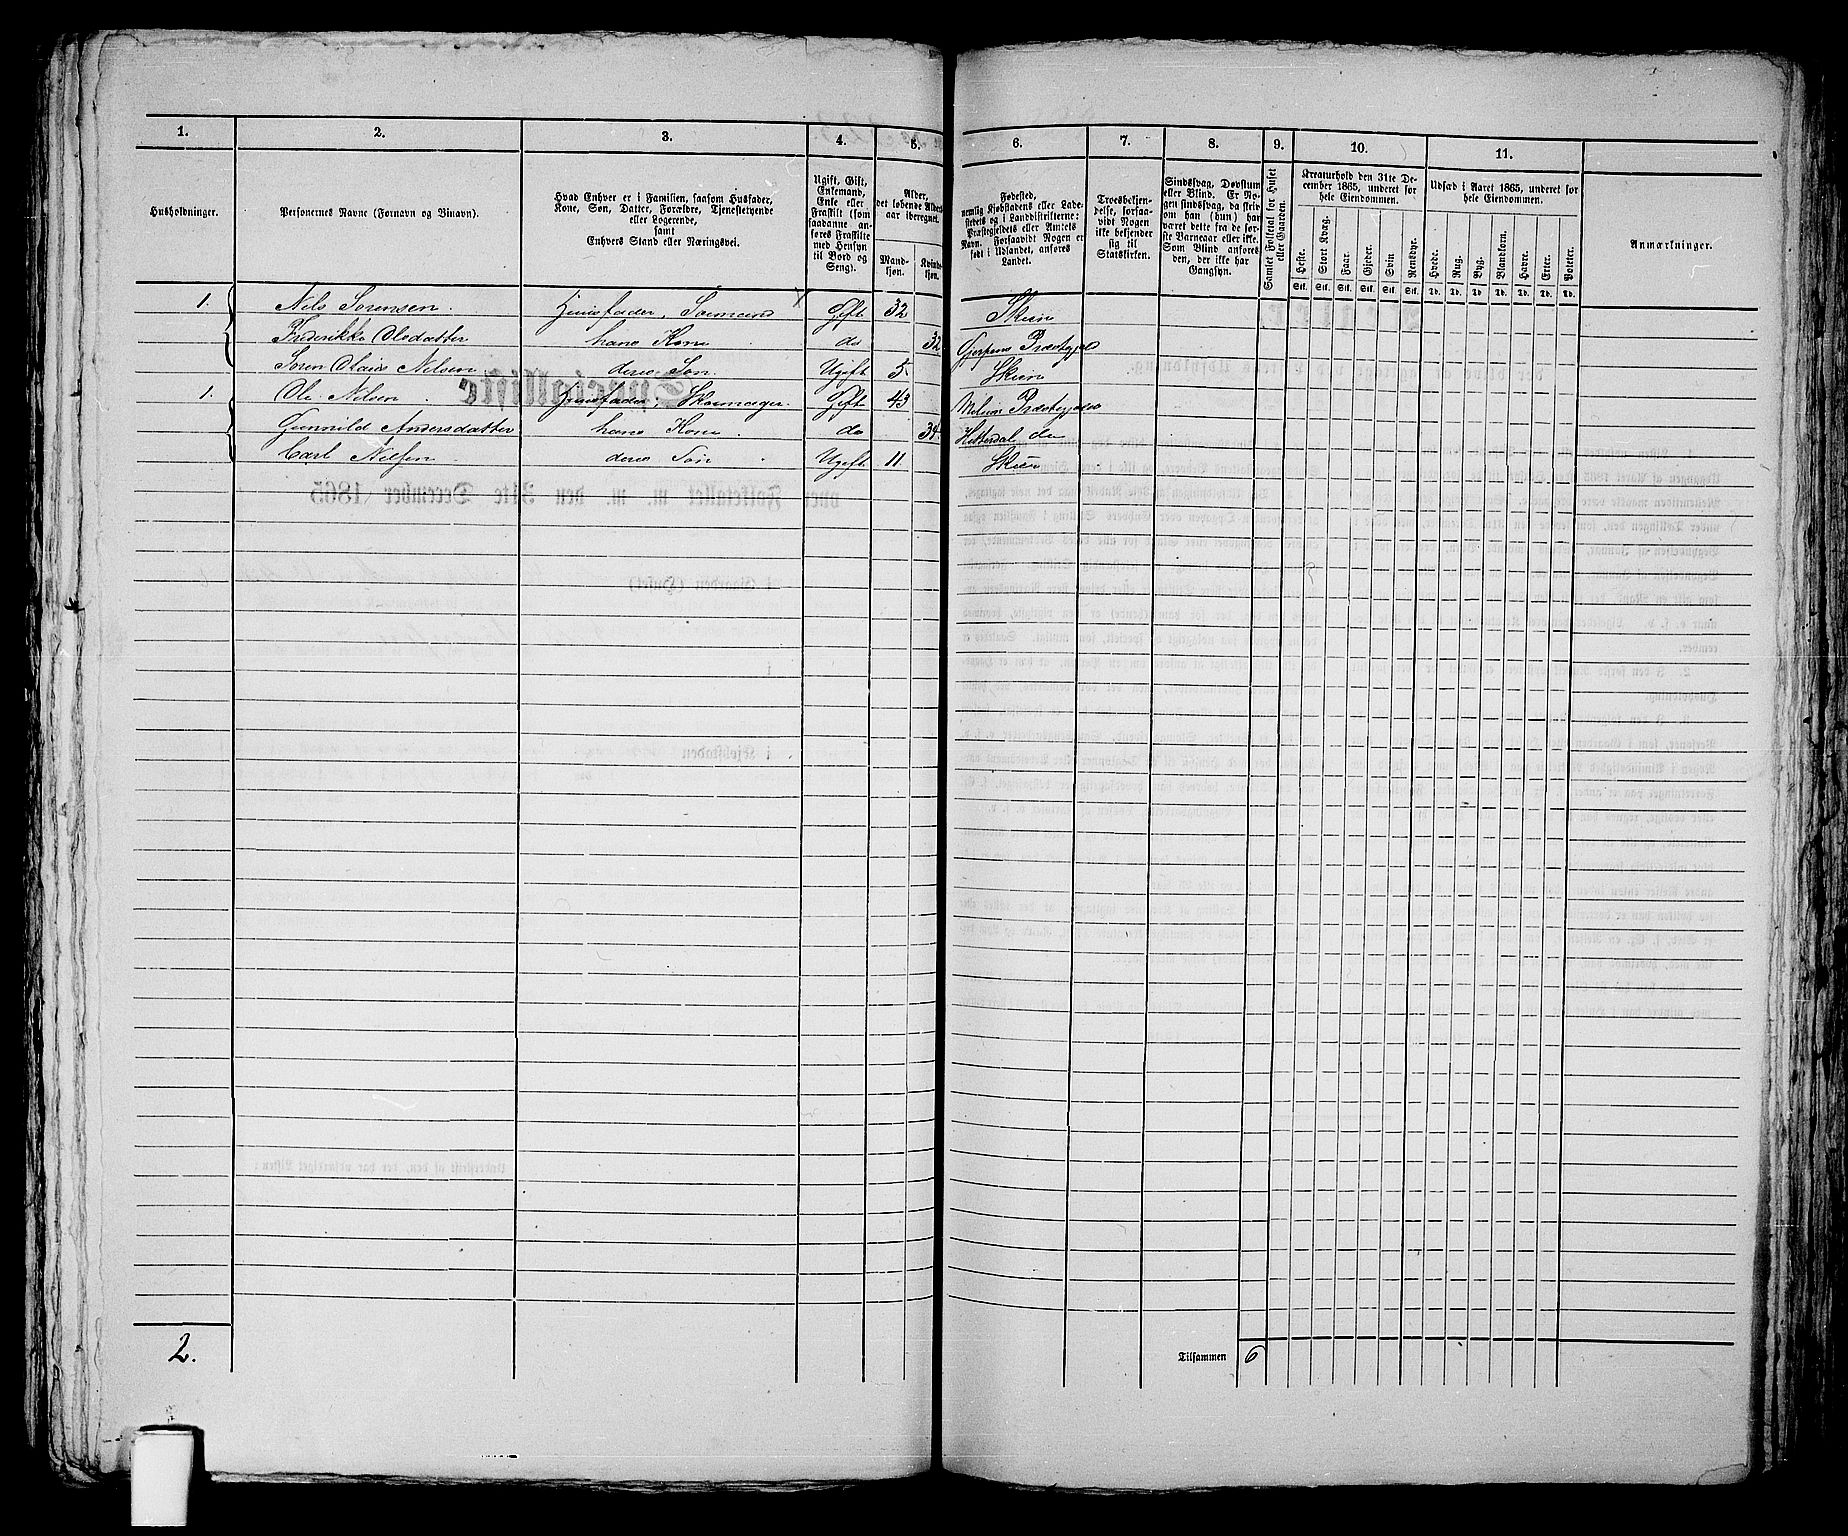 1. 2. 3. 4. 5. 6. 7. 8. 9. 10. 11.
Husholdninger.
Personernes Navne (Fornavn og Binavn).
Hvad Enhver er i Familien, saasom Husfader,
Kone, Søn, Datter, Forældre, Tjenestetyende
eller Logerende,
samt
Enhvers Stand eller Næringsvei.
Ugift, Gift,
Enkemand,
Enke eller
Fraskilt (som
saadanne an-
føres Fraskilte
med Hensyn
til Bord og
Seng).
Alder,
det løbende Alders-
aar iberegnet.
Mand-
kjøn.
Kvinde-
kjøn.
Fødested,
nemlig Kjøbstadens eller Lade-
stedets og i Landdistrikterne:
Præstegjeldets eller Amtets
Navn. Forsaavidt Nogen er
født i Udlandet, anføres
Landet.
Troesbekjen-
delse, forsaa-
vidt Nogen
ikke bekjender
sig til
Statskirken.
Sindssvag, Døvstum
eller Blind. Er No-
gen sindssvag, da skriv
om han (hun) har
været dette fra de før-
ste Barneaar eller ikke.
Som Blind anføres
den, der ikke har
Gangsyn.
Samlet Folketal for Huset
eller Gaarden.
Kreaturhold den 31te De-
cember 1865, underet for
hele Eiendommen.
Heste. Stort Kvæg. Faar. Gjeder. Svin Rensdyr.
Stk. Stk. Stk. Stk. Stk. Stk.
Udsæd i Aaret 1865, underet for
hele Eiendommen.
Hvede. Rug. Byg. Blandkorn. Havre. Erter. Poteter.
Td. Td. Td. Td. Td. Td. Td.
Anmærkninger.
1. Nils Sørensen. Huusfader, Sømand Gift 32 Skien
Frederikke Olsdatter hans Kone do 32 Gjerpens Præstegjeld
Søren Olaus Nilsen deres Søn. Ugift 5 Skien
1. Ole Nilsen Huusfader, Skomager. Gift 43 Præstegjeld
Gunnild Andersdatter hans Kone do 34 Hitterdal do
Carl Nilsen deres Søn Ugift 11 Skien
2.
Tilsammen 6